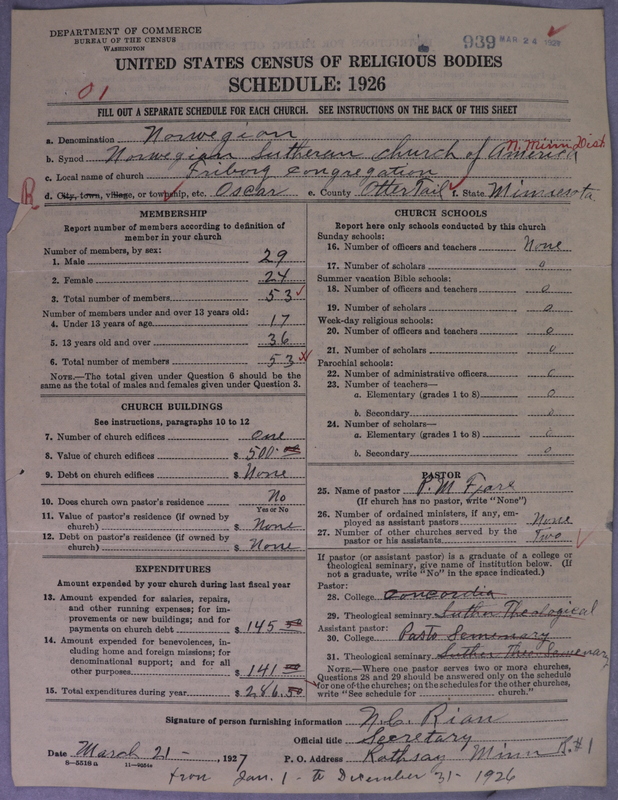 DEPARTMENT OF COMMERCE
BUREAU OF THE CENSUS
WASHINGTON
939 MAR 24 1927
UNITED STATES CENSUS OF RELIGIOUS BODIES
SCHEDULE: 1926
01
FILL OUT A SEPARATE SCHEDULE FOR EACH CHURCH. SEE INSTRUCTIONS ON THE BACK OF THIS SHEET
a. Denomination Norwegian
N. Minn Dist
b. Synod Norwegian Lutheran Church of America
c. Local name of church Friborg Congregation
R d. City, town, village, or township, etc. Oscar e. County Otter Tail f. State Minnesota
MEMBERSHIP
Report number of members according to definition of
member in your church
Number of members, by sex:
1. Male 29
2. Female 24
3. Total number of members 53
Number of members under and over 13 years old:
4. Under 13 years of age 17
5. 13 years old and over 36
6. Total number of members 53
NOTE.—The total given under Question 6 should be the
same as the total of males and females given under Question 3.
CHURCH BUILDINGS
See instructions, paragraphs 10 to 12
7. Number of church edifices one
8. Value of church edifices $ 500.00
9. Debt on church edifices $ None
10. Does church own pastor's residence No
Yes or No
11. Value of pastor's residence (if owned by
church) $ None
12. Debt on pastor's residence (if owned by
church) $ None
EXPENDITURES
Amount expended by your church during last fiscal year
13. Amount expended for salaries, repairs,
and other running expenses; for im-
provements or new buildings; and for
payments on church debt $ 145.50
14. Amount expended for benevolences, in-
cluding home and foreign missions; for
denominational support; and for all
other purposes $ 141.00
15. Total expenditures during year $ 286.50
CHURCH SCHOOLS
Report here only schools conducted by this church
Sunday schools:
16. Number of officers and teachers None
17. Number of scholars 0
Summer vacation Bible schools:
18. Number of officers and teachers 0
19. Number of scholars 0
Week-day religious schools:
20. Number of officers and teachers 0
21. Number of scholars 0
Parochial schools:
22. Number of administrative officers 0
23. Number of teachers—
a. Elementary (grades 1 to 8) 0
b. Secondary 0
24. Number of scholars—
a. Elementary (grades 1 to 8) 0
b. Secondary 0
PASTOR
25. Name of pastor P. M. Fjare
(If church has no pastor, write "None")
26. Number of ordained ministers, if any, em-
ployed as assistant pastors None
27. Number of other churches served by the
pastor or his assistants Two
If pastor (or assistant pastor) is a graduate of a college or
theological seminary, give name of institution below. (If
not a graduate, write "No" in the space indicated.)
Pastor:
28. College Concordia
29. Theological seminary Luther Theological
Assistant pastor:
30. College Pasto Semenary
31. Theological seminary Luther Theo Semenary
NOTE.—Where one pastor serves two or more churches,
Questions 28 and 29 should be answered only on the schedule
for one of the churches; on the schedules for the other churches,
write "See schedule for church."
Signature of person furnishing information N. C. Rian
Official title Secretary
Date March 21-, 1927 P. O. Address Rothsay Minn R.#1
8-5518 a
from Jan. 1 - to December 31 - 1926